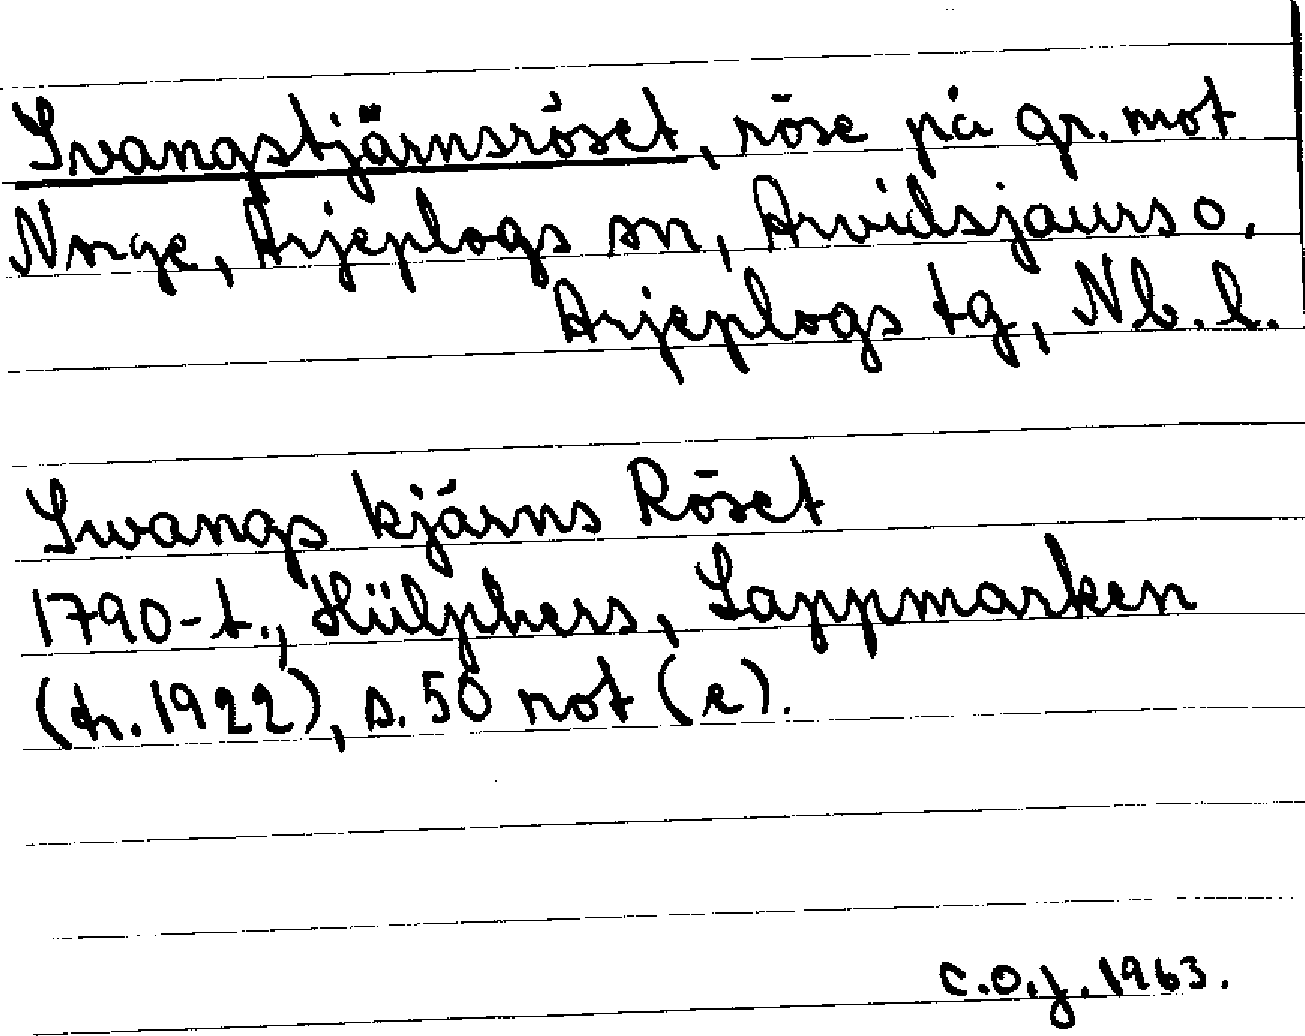 Svangstjärnsröset, röse på gr. mot
Norge, Arjeplogs sn, Arvidsjaurs o.
Arjeplogs tg, Nb. l.
Svangs kjärns Röset
1790-t., Hülphers, Lappmarken
(tr. 1922), s. 50 not (e).
C.O.J. 1963.